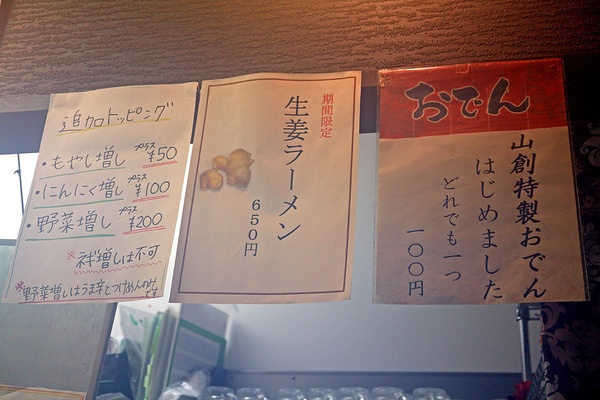 追加トッピング
・もやし増し プラス ¥50
・にんにく増し プラス ¥100
・野菜増し プラス ¥200
※ネギ増しは不可
※野菜増しはうま辛とつけめんのみです
期間限定
生姜ラーメン
650円
おでん
山創特製おでん
はじめました
どれでも一つ
一〇〇円